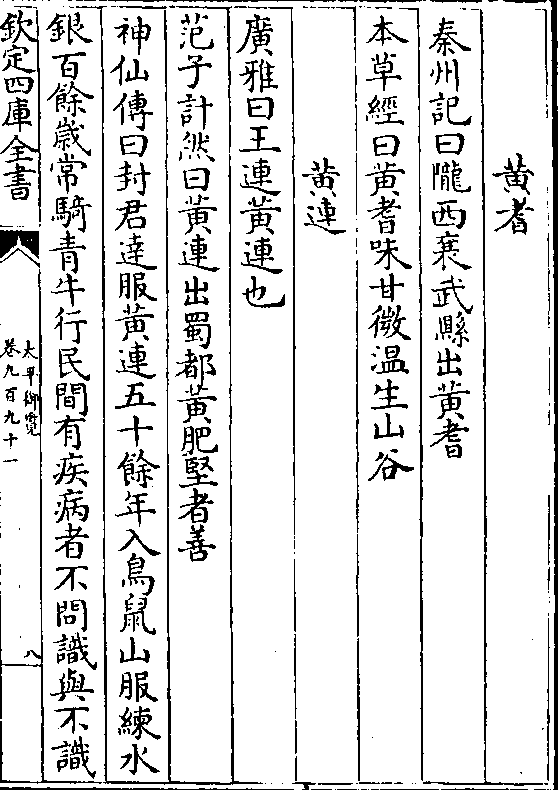 黄耆
秦州記曰隴西襄武縣出黄耆
本草經曰黄耆味甘微温生山谷
黄連
廣雅曰王連黄連也
范子計然曰黄連出蜀都黄肥堅者善
神仙傳曰封君達服黄連五十餘年入鳥鼠山服練水
銀百餘歳常騎青牛行民間有疾病者不問識與不識
欽定四庫全書
太平御覽
卷九百九十一
八